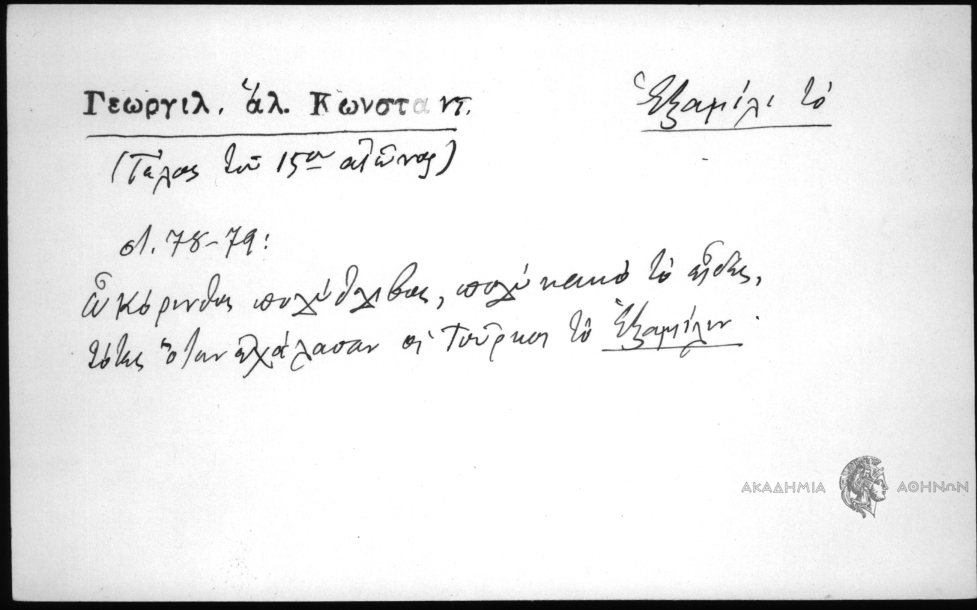 Γεωργιλ. ἅλ. Κωνσταντ.
Ἑξαμίλι τό
(Τέλος τοῦ 15ου αἰῶνος)
στ. 78-79:
ὦ Κόρινθος πολύθλιβος, πολύ κακό τό εἶδες,
τότες ὅταν ἐχάλασαν οἱ Τοῦρκοι τό Ἑξαμίλιν.
ΑΚΑΔΗΜΙΑ ΑΘΗΝΩΝ